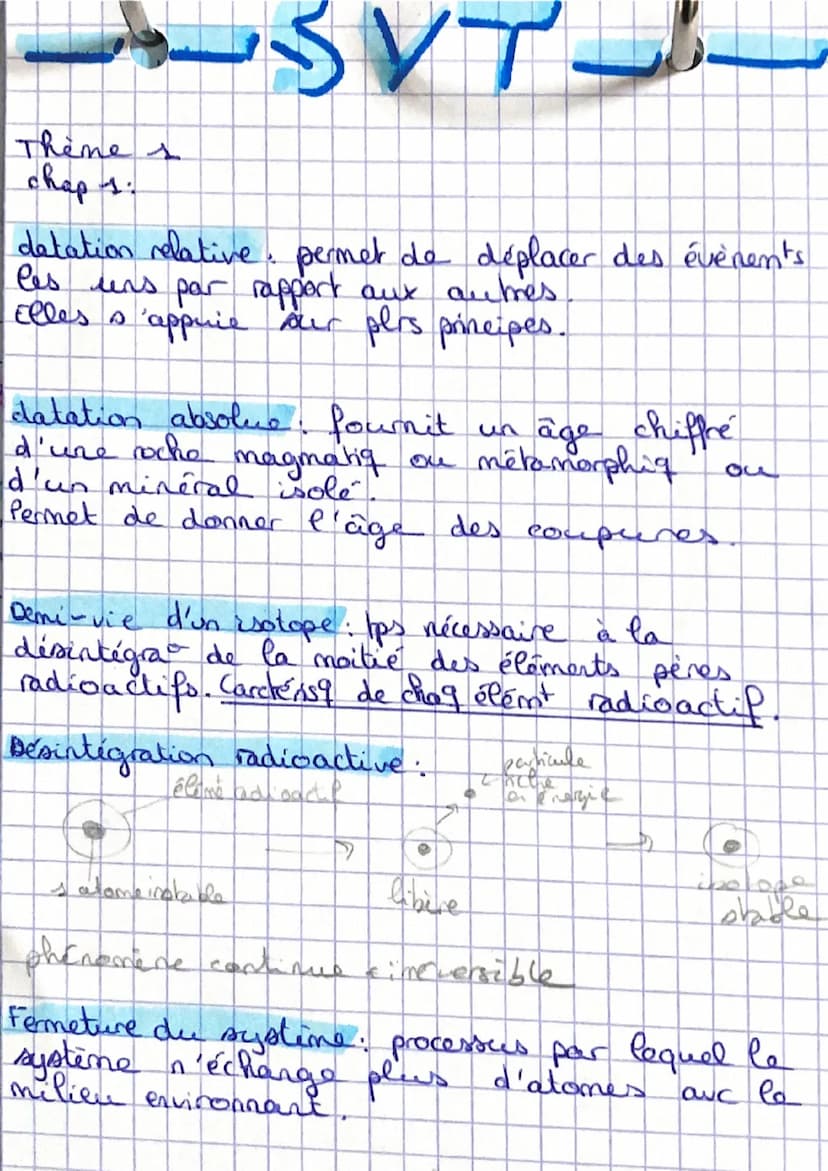 SVT
Thème 1
chap 1:
datation relative : permet de déplacer des évènements
les uns par rapport aux autres.
Elles s'appuie sur plrs principes.
datation absolue : fournit un âge chiffré
d'une roche magmatiq ou métamorphiq ou
d'un minéral isolé.
Permet de donner l'âge des coupures.
Demi-vie d'un isotope : tps nécessaire à la
désintégra° de la moitié des éléments pères
radioactifs. Carcténsq de chaq élémt radioactif.
Désintégration radioactive :
particule
riche
en énergie
élémt radioactif
1 atome instable
libère
isotope
stable
phénomène continue + irréversible
Fermeture du système : processus par lequel le
système n'échange plus d'atomes avc le
milieu environnant.